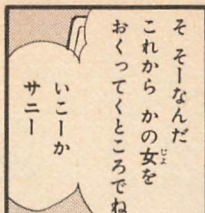 そ そーなんだ
これから かの女を
おくってくところでね
いこーか
サニー